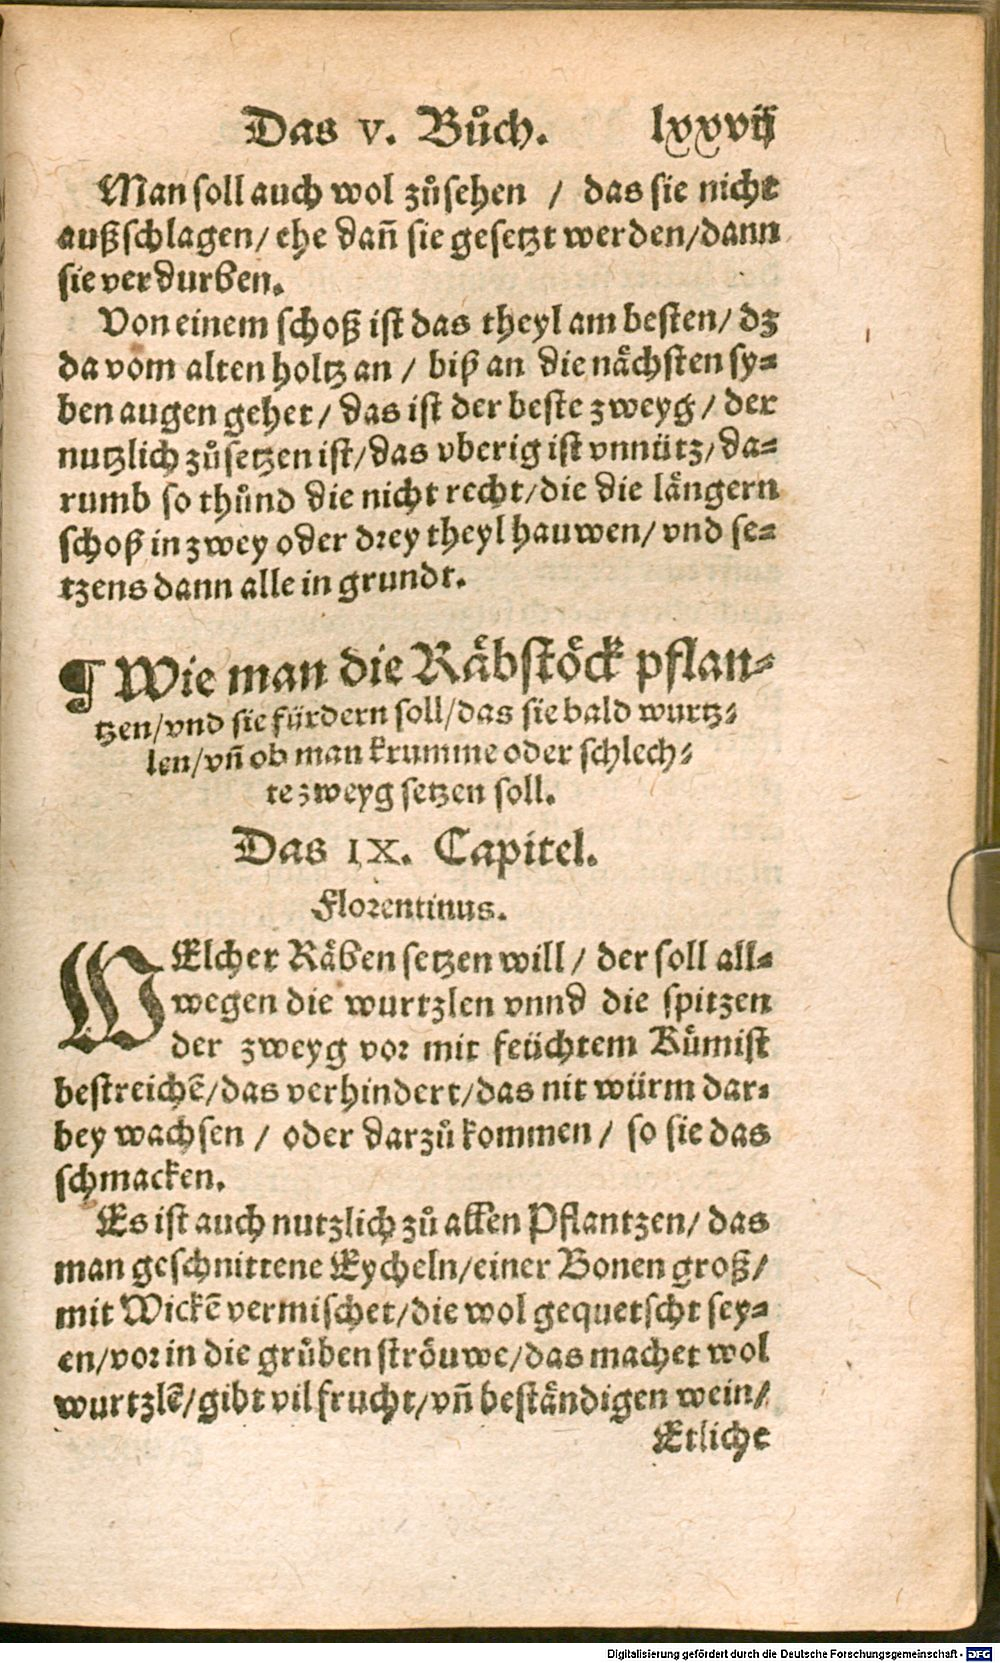 Das V. Bůch. lxxvij
Man soll auch wol zůsehen / das sie nicht
außschlagen/ ehe dañ sie gesetzt werden/dann
sie verdurben.
Von einem schoß ist das theyl am besten/ dz
da vom alten holtz an / biß an die nächsten sy-
ben augen gehet/ das ist der beste zweyg/ der
nutzlich zůsetzen ist/das vberig ist vnnütz/da-
rumb so thůnd die nicht recht/die die längern
schoß in zwey oder drey theyl hauwen/ vnd se-
tzens dann alle in grundt.
¶ Wie man die Räbstöck pflan-
tzen/vnd sie fürdern soll/das sie bald wurtz-
len/vñ ob man krumme oder schlech-
te zweyg setzen soll.
Das IX. Capitel.
Florentinus.
WElcher Räben setzen will/ der soll all-
wegen die wurtzlen vnnd die spitzen
der zweyg vor mit feüchtem Kümist
bestreichē/das verhindert/das nit würm dar-
bey wachsen / oder darzů kommen/ so sie das
schmacken.
Es ist auch nutzlich zů allen Pflantzen/ das
man geschnittene Eycheln/einer Bonen groß/
mit Wickē vermischet/die wol gequetscht sey-
en/vor in die grůben ströuwe/das machet wol
wurtzlē/gibt vil frucht/vñ beständigen wein/
Etliche
Digitalisierung gefördert durch die Deutsche Forschungsgemeinschaft - DFG